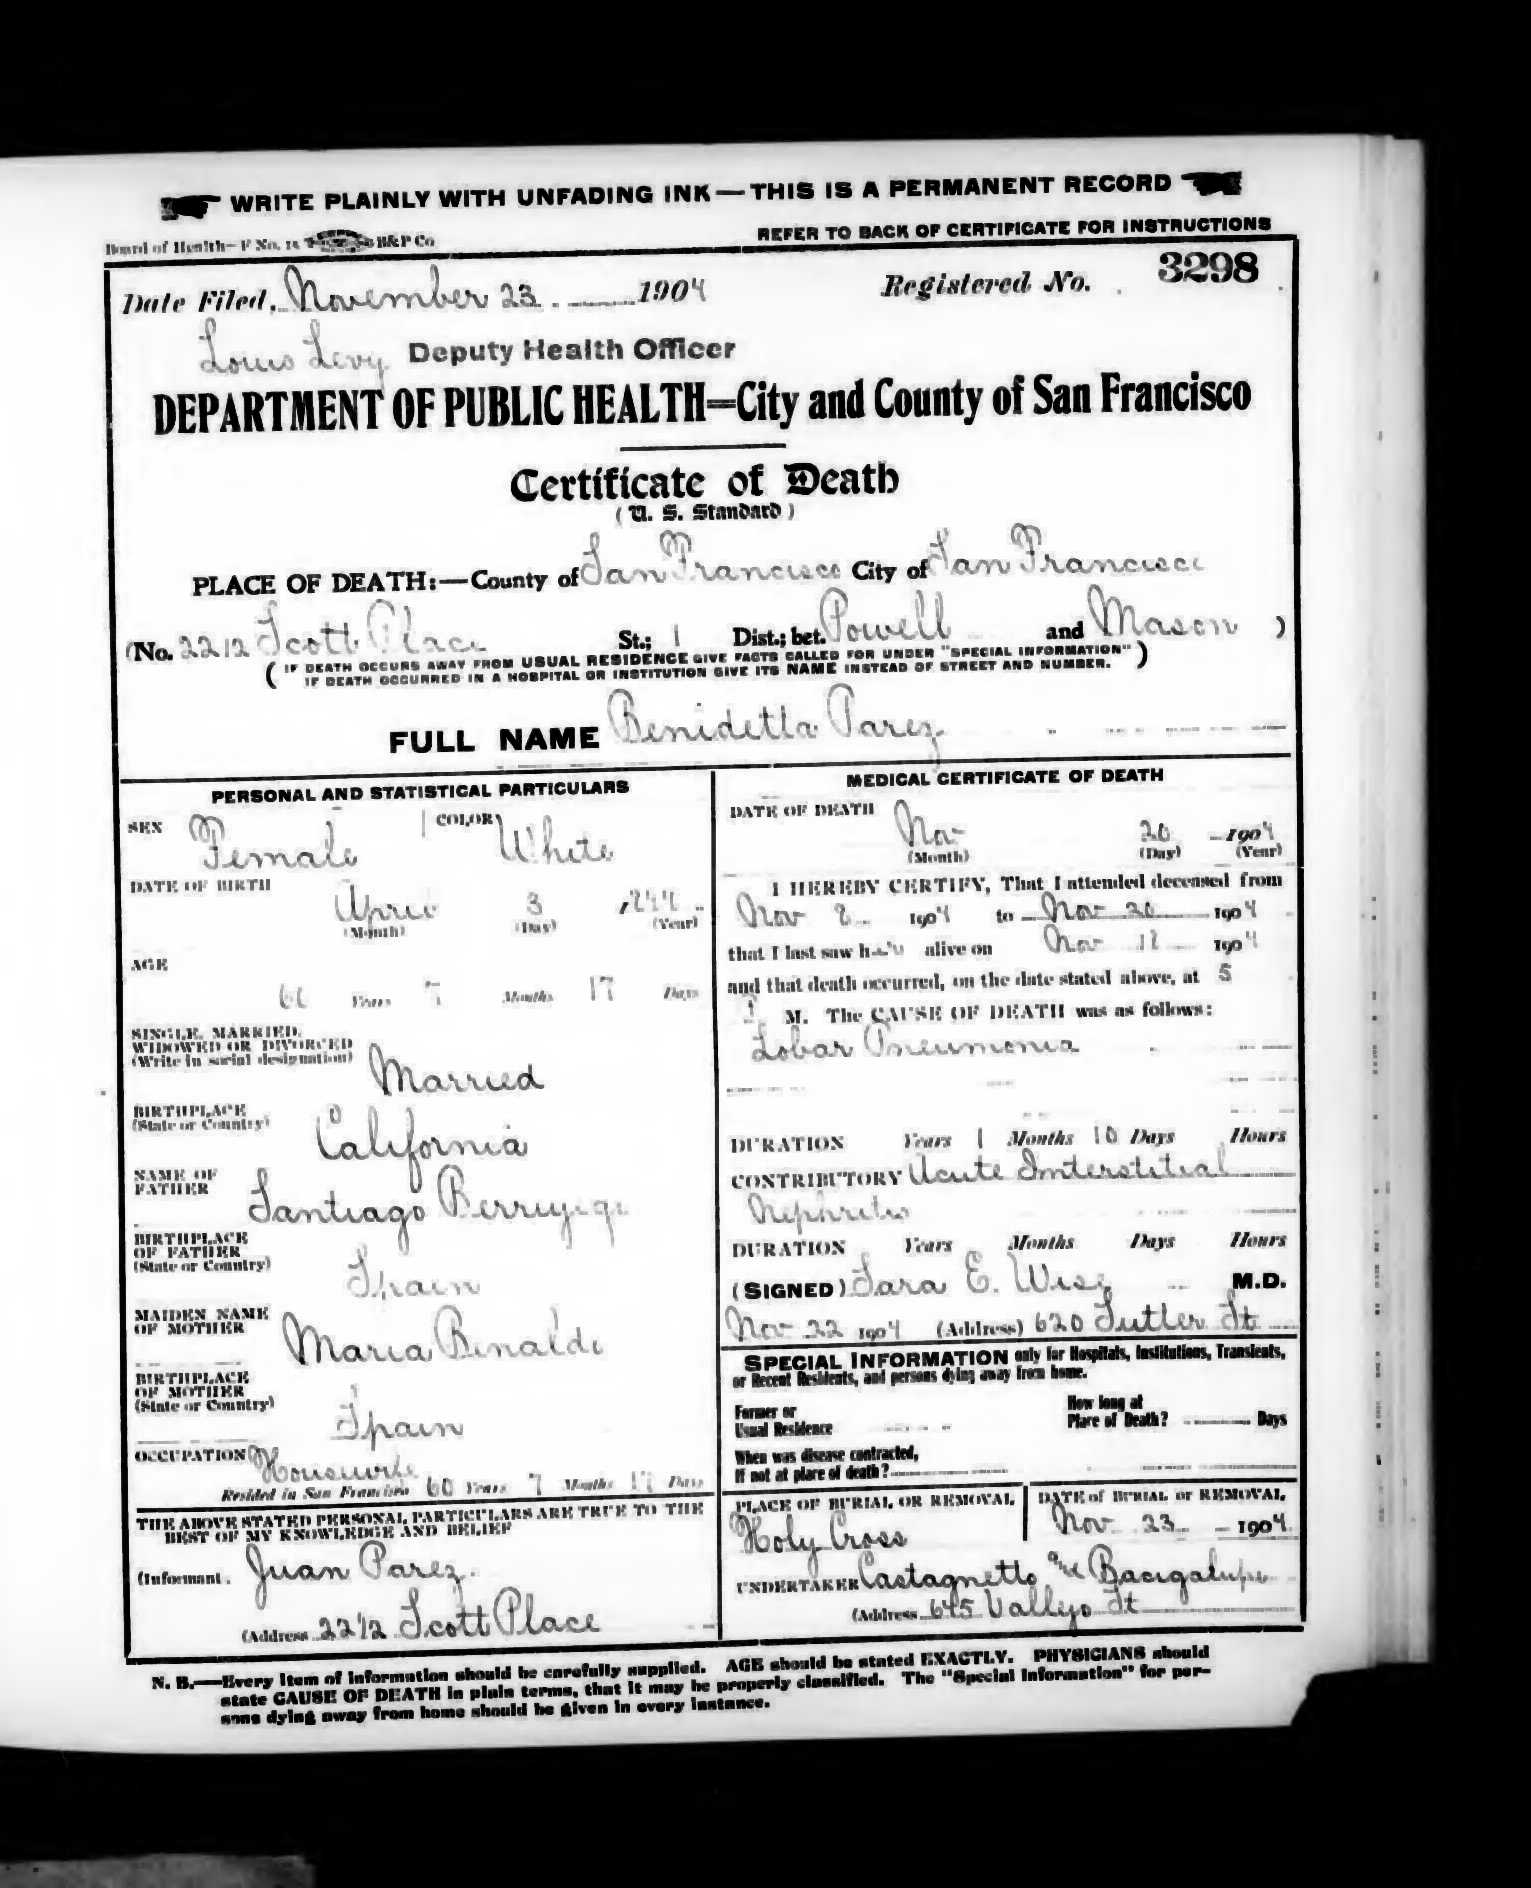 WRITE PLAINLY WITH UNFADING INK — THIS IS A PERMANENT RECORD
Board of Health—F No. H&P Co
REFER TO BACK OF CERTIFICATE FOR INSTRUCTIONS
Date Filed, November 23 1904 Registered No. 3298
Louis Levy Deputy Health Officer
DEPARTMENT OF PUBLIC HEALTH=City and County of San Francisco
Certificate of Death
(U. S. Standard)
PLACE OF DEATH:—County of San Francisco City of San Francisco
(No. 22 1/2 Scott Place St.; 1 Dist.; bet. Powell and Mason )
( IF DEATH OCCURS AWAY FROM USUAL RESIDENCE GIVE FACTS CALLED FOR UNDER "SPECIAL INFORMATION" )
IF DEATH OCCURRED IN A HOSPITAL OR INSTITUTION GIVE ITS NAME INSTEAD OF STREET AND NUMBER.
FULL NAME Benidetta Parez
PERSONAL AND STATISTICAL PARTICULARS
SEX Female COLOR White
DATE OF BIRTH April 3
(Month) (Day) (Year)
AGE
Years 7 Months 17 Days
SINGLE, MARRIED,
WIDOWED OR DIVORCED
(Write in social designation) Married
BIRTHPLACE
(State or Country) California
NAME OF
FATHER Santiago
BIRTHPLACE
OF FATHER
(State or Country) Spain
MAIDEN NAME
OF MOTHER Maria
BIRTHPLACE
OF MOTHER
(State or Country) Spain
OCCUPATION Housewife
Resided in San Francisco 60 Years 7 Months 17 Days
THE ABOVE STATED PERSONAL PARTICULARS ARE TRUE TO THE
BEST OF MY KNOWLEDGE AND BELIEF
(Informant Juan Parez
(Address 22 1/2 Scott Place
MEDICAL CERTIFICATE OF DEATH
DATE OF DEATH
Nov 20 1904
(Month) (Day) (Year)
I HEREBY CERTIFY, That I attended deceased from
Nov 8 1904 to Nov 20 1904
that I last saw her alive on Nov 1904
and that death occurred, on the date stated above, at 5
M. The CAUSE OF DEATH was as follows:
Lobar Pneumonia
DURATION Years 1 Months 10 Days Hours
CONTRIBUTORY Acute Interstitial
Nephritis
DURATION Years Months Days Hours
(SIGNED) Sara E. Wise M.D.
Nov 22 1904 (Address) 620 Sutter St
SPECIAL INFORMATION only for Hospitals, Institutions, Transients,
or Recent Residents, and persons dying away from home.
Former or
Usual Residence
How long at
Place of Death? Days
When was disease contracted,
If not at place of death?
PLACE OF BURIAL OR REMOVAL
Holy Cross
DATE of BURIAL or REMOVAL
Nov 23 1904
UNDERTAKER Castagnetto and Bacigalupi
(Address 645 Vallejo St
N. B.—Every item of information should be carefully supplied. AGE should be stated EXACTLY. PHYSICIANS should
state CAUSE OF DEATH in plain terms, that it may be properly classified. The "Special Information" for per-
sons dying away from home should be given in every instance.